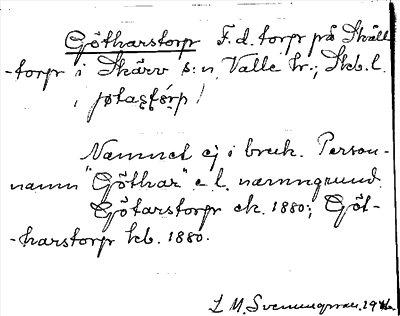 Götharstorp F. d. torp på Skäll
-torp i Skärv s:n, Valle hr.; Skb. l.
/ jøtaʂtǿrp /
Namnet ej i bruk. Person-
namn "Göthar" e. l. namngrund.
Götarstorp ek. 1880; Göt-
-harstorp kb. 1880.
L M. Svenungsson. 19